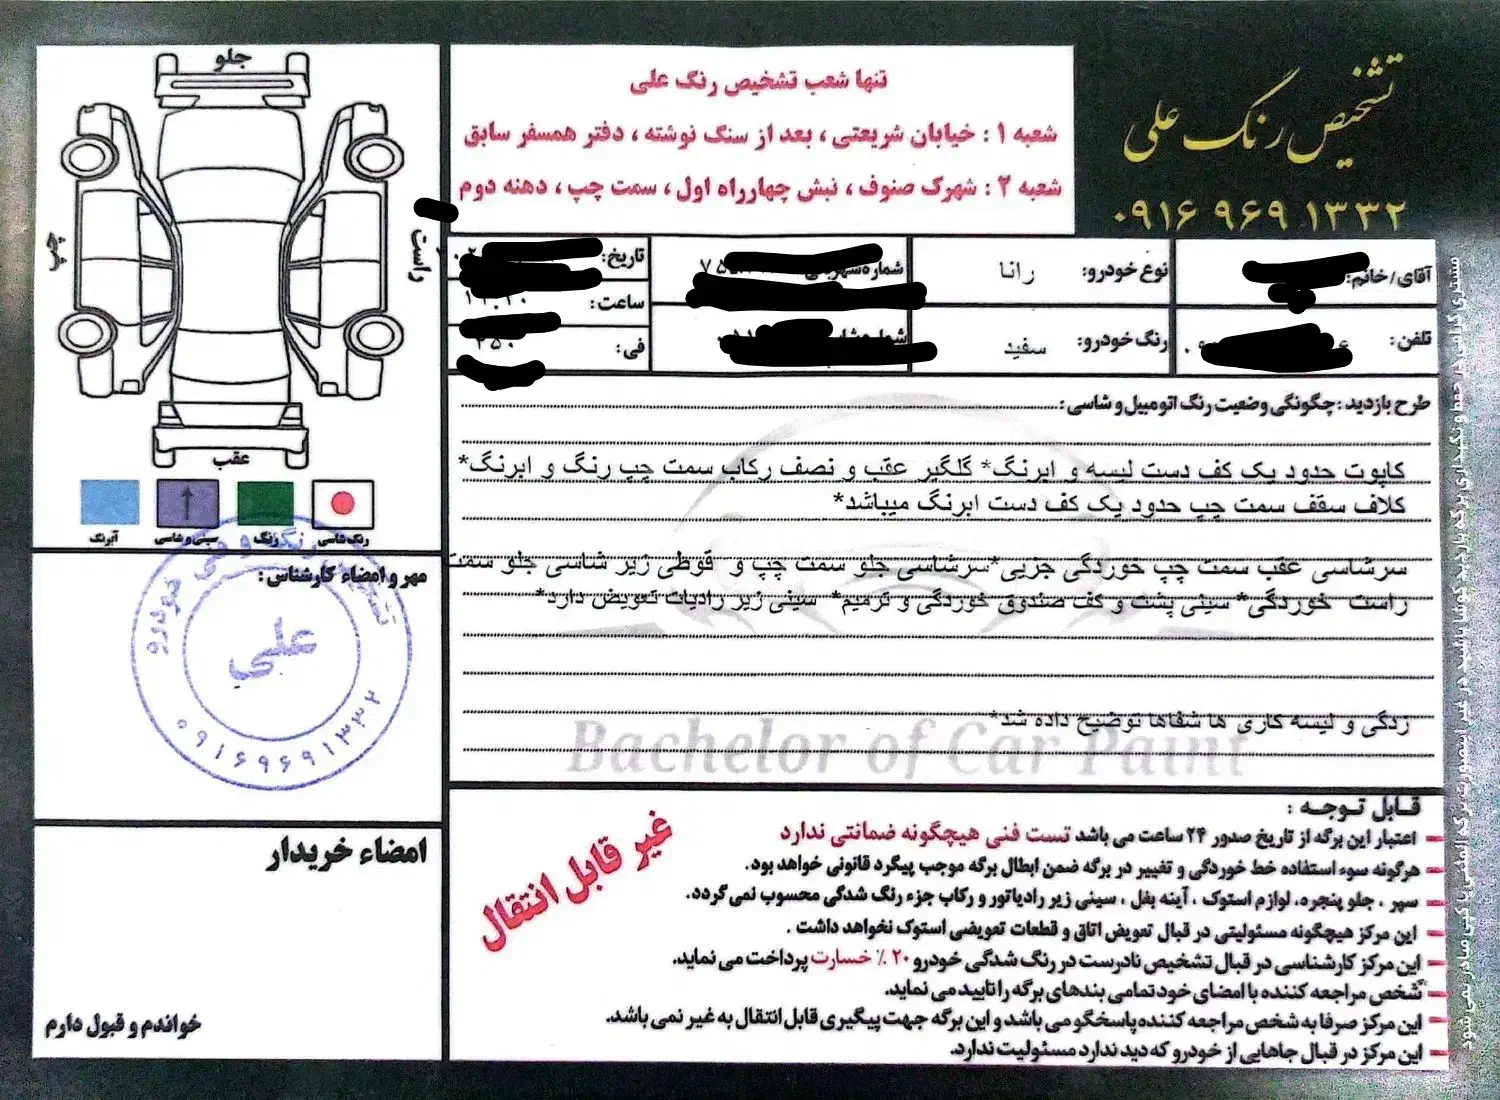 تشخیص رنگ علی
۰۹۱۶ ۹۶۹ ۱۳۳۲
تنها شعب تشخیص رنگ علی
شعبه ۱ : خیابان شریعتی ، بعد از سنگ نوشته ، دفتر همسفر سابق
شعبه ۲ : شهرک صنوف ، نبش چهارراه اول ، سمت چپ ، دهنه دوم
جلو
راست
چپ
عقب
رنگ شاسی
رنگ
سینی و شاسی
آبرنگ
آقای/خانم:
نوع خودرو: رانا
تاریخ:
ساعت:
تلفن:
رنگ خودرو: سفید
فی:
طرح بازدید : چگونگی وضعیت رنگ اتومبیل و شاسی :
کاپوت حدود یک کف دست لیسه و ابرنگ* گلگیر عقب و نصف رکاب سمت چپ رنگ و ابرنگ*
کلاف سقف سمت چپ حدود یک کف دست ابرنگ میباشد*
سرشاسی عقب سمت چپ خوردگی جزیی*سرشاسی جلو سمت چپ و قوطی زیر شاسی جلو سمت
راست خوردگی* سینی پشت و کف صندوق خوردگی و ترمیم* سینی زیر رادیات تعویض دارد*
زدگی و لیسه کاری ها شفاها توضیح داده شد*
Bachelor of Car Paint
مهر و امضاء کارشناس :
علی
۰۹۱۶۹۶۹۱۳۳۲
امضاء خریدار
خواندم و قبول دارم
غیر قابل انتقال
قابل توجه :
اعتبار این برگه از تاریخ صدور ۲۴ ساعت می باشد تست فنی هیچگونه ضمانتی ندارد
هرگونه سوء استفاده خط خوردگی و تغییر در برگه ضمن ابطال برگه موجب پیگرد قانونی خواهد بود.
سپر ، جلو پنجره، لوازم استوک ، آینه بغل ، سینی زیر رادیاتور و رکاب جزء رنگ شدگی محسوب نمی گردد.
این مرکز هیچگونه مسئولیتی در قبال تعویض اتاق و قطعات تعویضی استوک نخواهد داشت .
این مرکز کارشناسی در قبال تشخیص نادرست در رنگ شدگی خودرو ۲۰ ٪ خسارت پرداخت می نماید.
شخص مراجعه کننده با امضای خود تمامی بندهای برگه را تایید می نماید.
این مرکز صرفا به شخص مراجعه کننده پاسخگو می باشد و این برگه جهت پیگیری قابل انتقال به غیر نمی باشد.
این مرکز در قبال جاهایی از خودرو که دید ندارد مسئولیت ندارد.